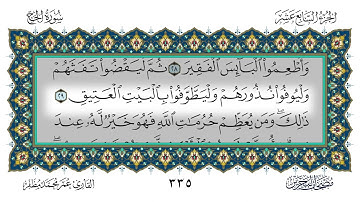 الجزء السابع عشر
سورة الحج
وَأَطْعِمُوا۟ ٱلْبَآئِسَ ٱلْفَقِيرَ ٢٨ ثُمَّ لْيَقْضُوا۟ تَفَثَهُمْ
وَلْيُوفُوا۟ نُذُورَهُمْ وَلْيَطَّوَّفُوا۟ بِٱلْبَيْتِ ٱلْعَتِيقِ ٢٩
ذَٰلِكَ وَمَن يُعَظِّمْ حُرُمَٰتِ ٱللَّهِ فَهُوَ خَيْرٌ لَّهُۥ عِندَ
٣٣٥